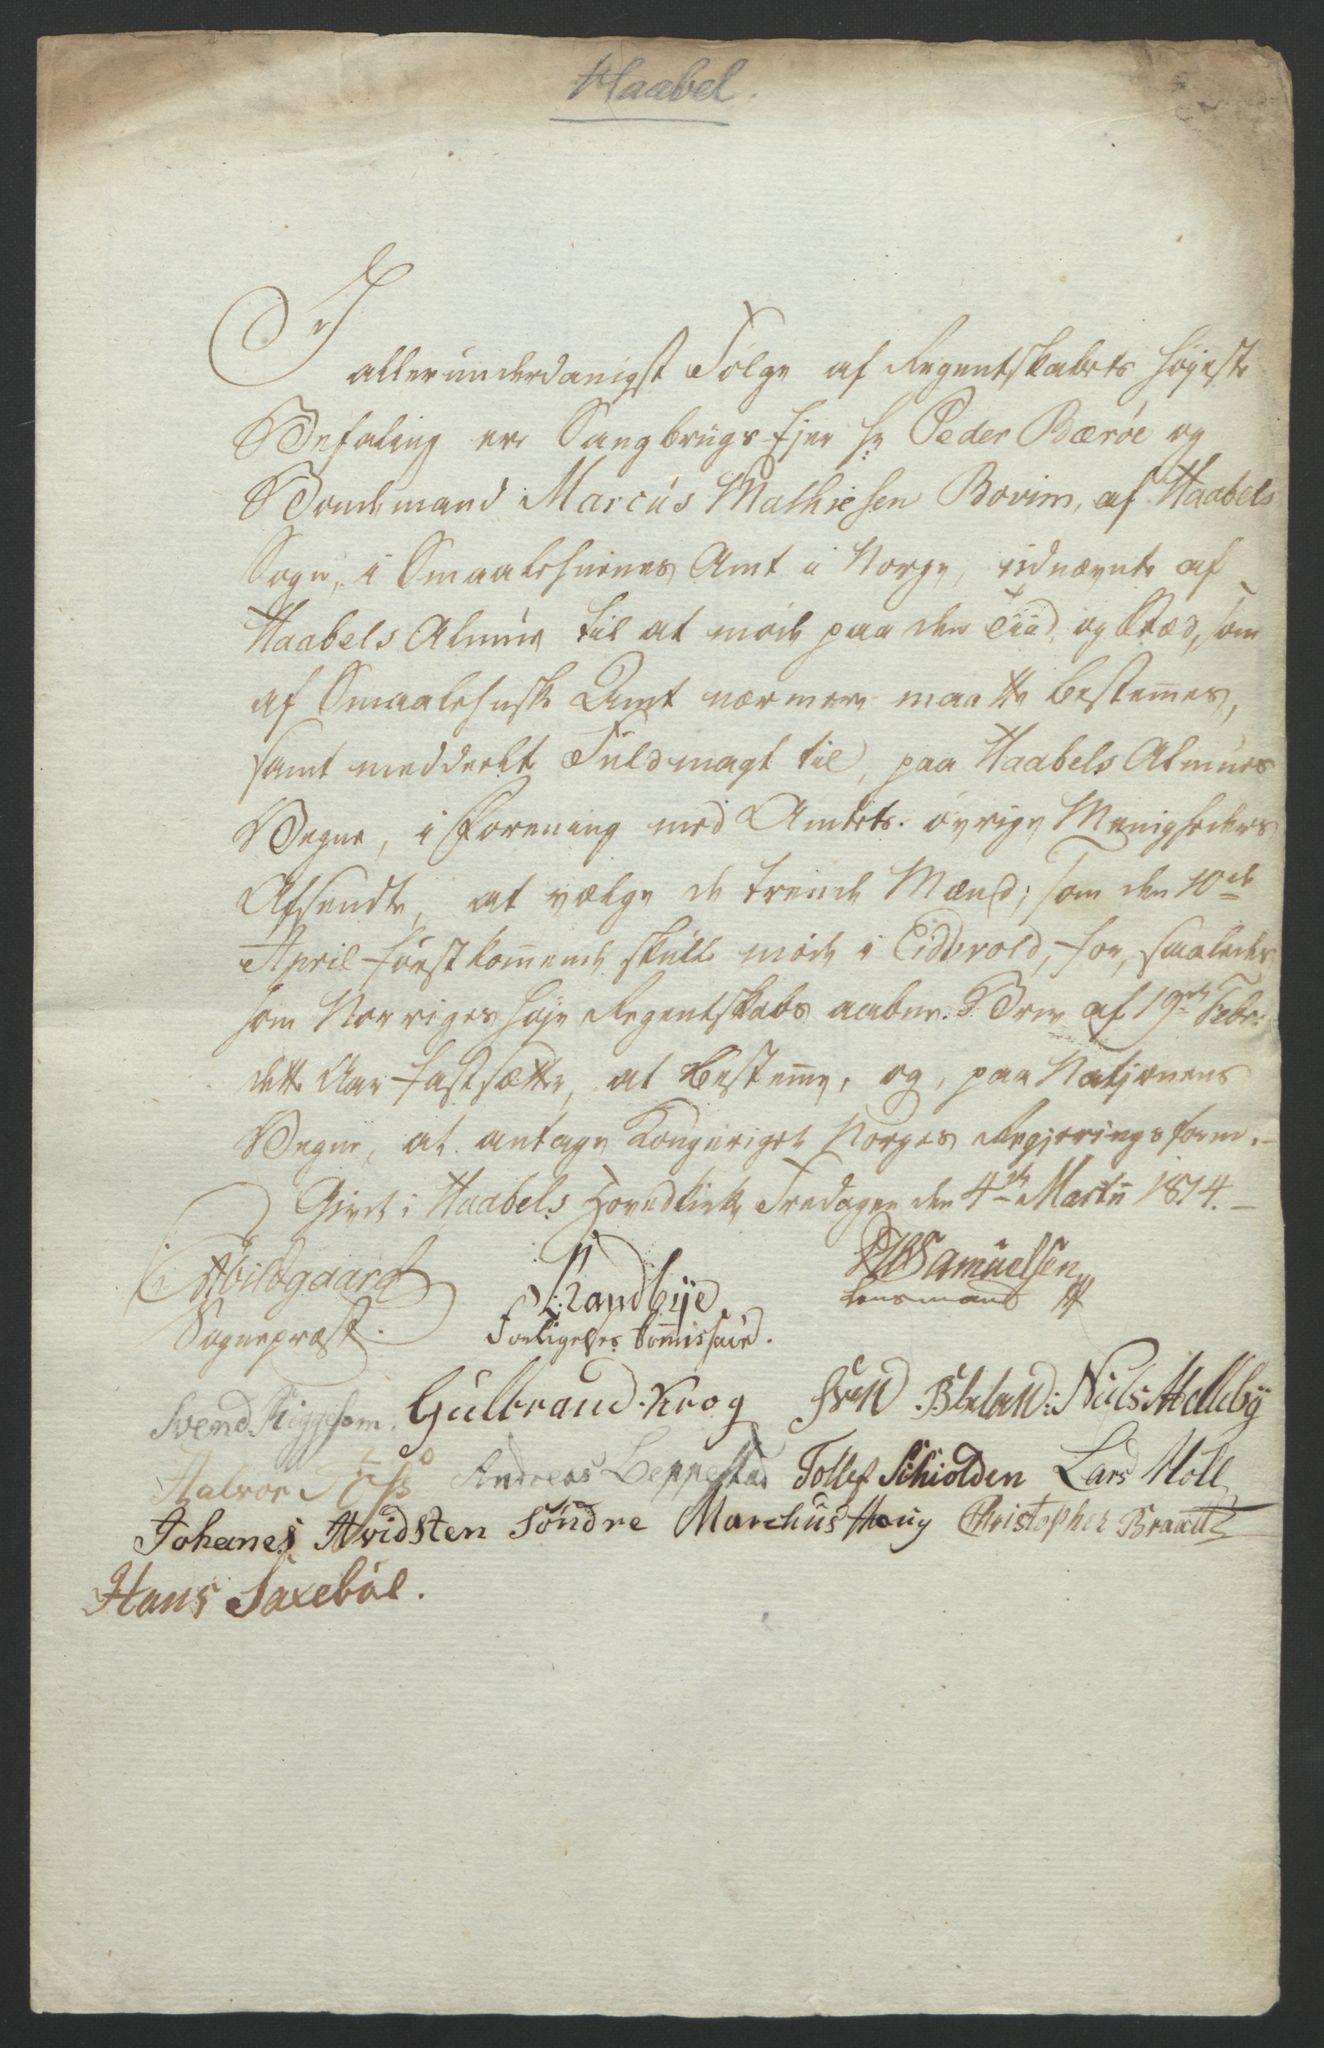 Haabel.
I
allerunderdanigst Følge af Regentskabets høyeste
Befaling ere Saugbrugs-Ejer Hr Peder Bærøe og
Bondemand Marcus Mathiesen Bovim, af Haabels
Sogn, i Smaalehnenes Amt i Norge, udnævnte af
Haabels Almue til at møde paa den Tiid og Stæd, som
af Smaalehnsk Amt nærmere maatte bestem̅es,
samt meddeelt Fuldmagt til, paa Haabels Almues
Vegne, i Forening med Amtets øvrige Menigheders
Afsendte, at vælge de trende Mænd, som den 10de
April førstkom̅ende skulle møde i Eidsvold, for, saaledes
som Norriges høje Regentskabs aabne Brev af 19de Febr:
dette Aar fastsætter, at bestem̅e, og, paa Natjonens
Vegne, at antage Kongeriget Norges Regjeringsform.-
Givet i Haabels Hovedkirke Fredagen den 4de Martii 1814.-
Abildgaard
Strandbye
Samuelsen
Sogneprest.
Forligelses Com̅issair.
Lensmand
Svend Kiggesom. Gulbrand Krog Sven Niels Melleby
Halvor Andreas Leppestad Tollef Schiolden Lars Moll
Johanes Hvidsten Søndre Marchus Haug Christopher Brandt
Hans Saxebøl.